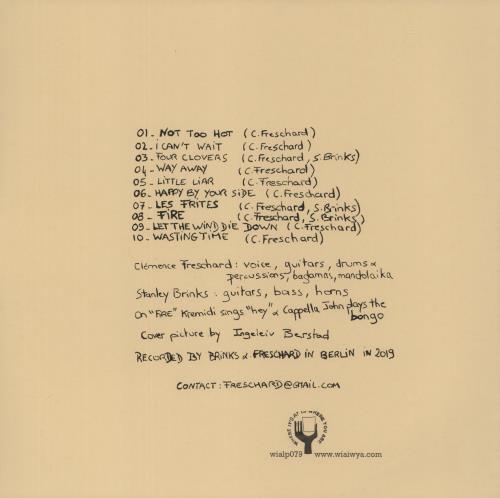 01_ NOT TOO HOT (C.Freschard)
02_ I CAN'T WAIT (C.Freschard)
03_ FOUR CLOVERS (C.Freschard, S.Brinks)
04_ WAY AWAY (C.Freschard)
05_ LITTLE LIAR (C.Freschard)
06_ HAPPY BY YOUR SIDE (C.Freschard)
07_ LES FRITES (C.Freschard, S.Brinks)
08_ FIRE (C.Freschard, S.Brinks)
09_ LET THE WIND DIE DOWN (C.Freschard)
10_ WASTING TIME (C.Freschard)
Clémence Freschard : voice, guitars, drums &
percussions, baglamas, mandolaika
Stanley Brinks : guitars, bass, horns
On "FIRE" Kremidi sings "hey" & Cappella John plays the
bongo
Cover picture by Ingeleiv Berstad
RECORDED BY BRINKS & FRESCHARD IN BERLIN IN 2019
CONTACT : FRESCHARD@GMAIL.COM
WHERE IT'S AT IS WHERE YOU ARE
wialp079 www.wiaiwya.com